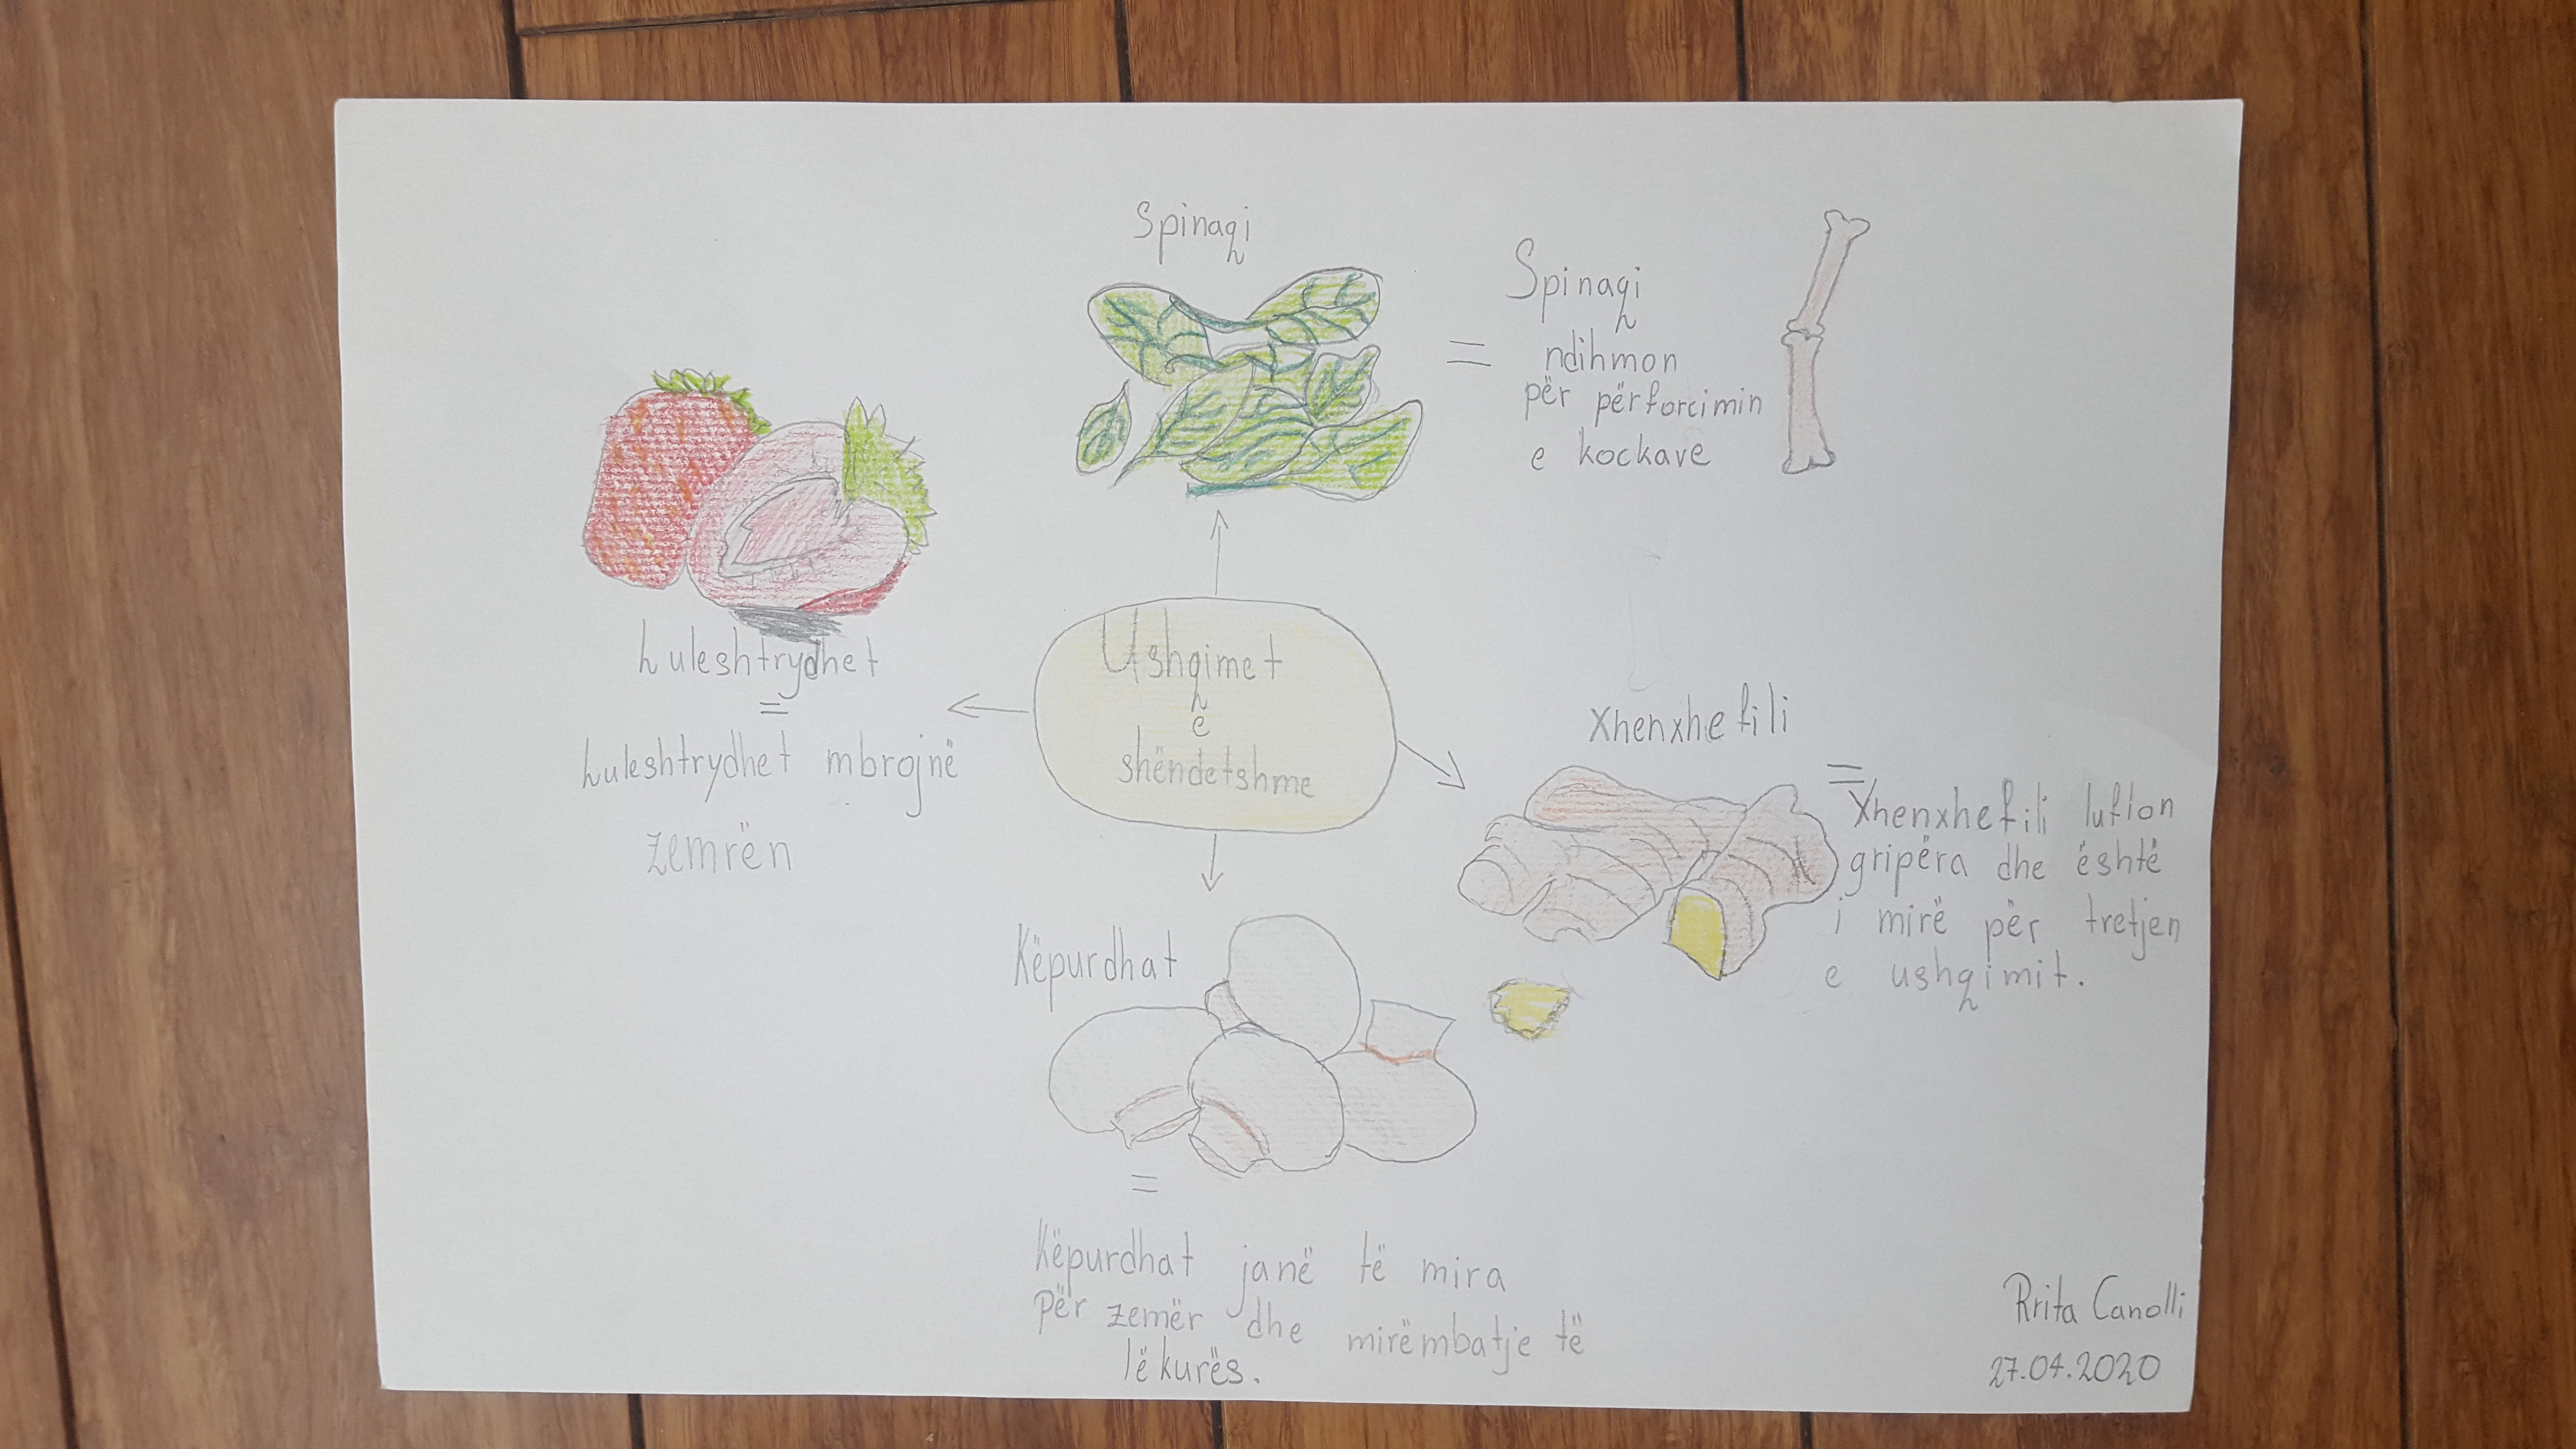 Spinaqi
Spinaqi
ndihmon
për përforcimin
e kockave
Luleshtrydhet
=
Luleshtrydhet mbrojnë
zemrën
Ushqimet
e
shëndetshme
Xhenxhefili
=
Xhenxhefili lufton
gripëra dhe është
i mirë për tretjen
e ushqimit.
Këpurdhat
=
Këpurdhat janë të mira
për zemër dhe mirëmbatje të
lëkurës.
Rrita Canolli
27.04.2020